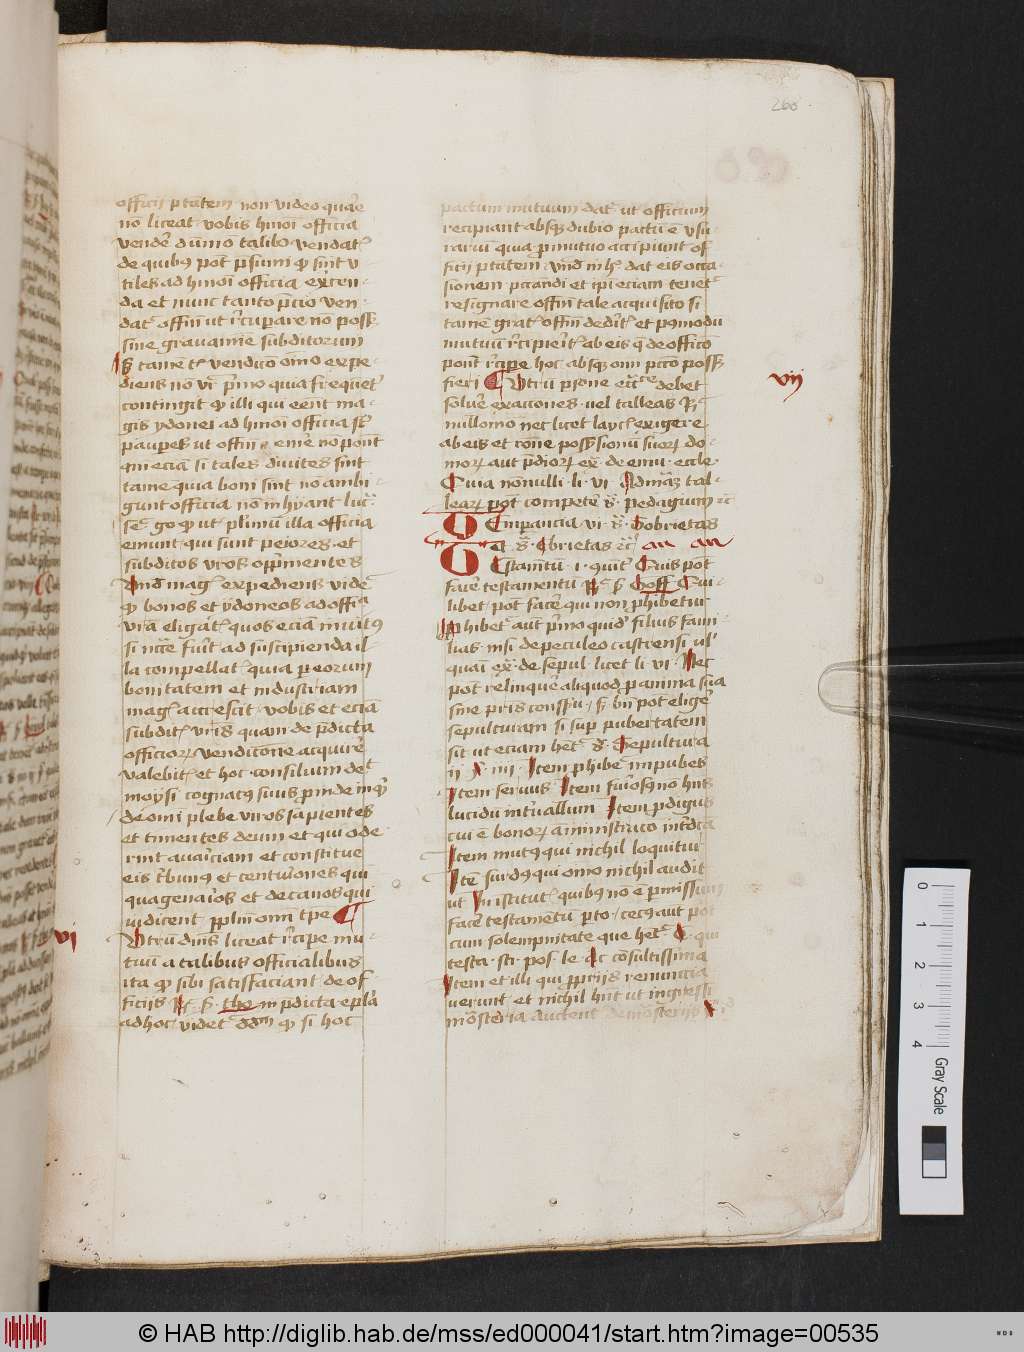 260
officii p tatem non video quare
no liceat vobis hmoi officia
vende dumo talibo vendat
de quibus pot psumi q sint v
tiles ad hmoi officia exercen
da et nunc tanto pcio ven
dat offm ut recuperare no poss
sine gravamine subditorum
tame vendico omo expe
diens no primo quia frequet
contingit q illi qui eent ma
gis ydonei ad hmoi officia st
paupes ut offm eme no pont
qui ecia si tales divites sint
tame quia boni sint no ambi
gunt officia no inhyant luc
se go q ut plimu illa officia
emunt qui sunt peiores et
subditos vros opprimentes
Und mag expediens vide
q bonos et ydoneos ad offia
vra eligat quos ecia invitus
si ncce fuit ad suscipienda il
la compellat quia per eorum
bonitatem et industriam
mag accrescit vobis et ecia
subdit vris quam de pdicta
officiorum venditione acquire
valebit et hoc consilium det
moysi cognatus suus provide inq
de omi plebe viros sapientes
et timentes deum et qui ode
rint avariciam et constitue
eis tbunos et centuriones qui
quagenarios et decanos qui
iudicent pplm omi tpe
vi
Utru dms liceat recipe mu
tuu a talibus officialibus
ita q sibi satisfaciant de of
ficiis R S tho in pdicta epla
ad hoc videt ddm q si hoc
pactum mutuum dat ut officium
recipiant absq dubio pactu e usu
rarium quia p mutuo accipiunt of
ficii ptatem Und in h dat eis occa
sionem pccandi et ipi eciam tenet
resignare offm tale acquisito si
tame grat offm dedit et pqmodu
mutuu recipiet ab eis q de officio
pont recipe hoc absq omi pcco poss
fieri Utru psone ecce debet
vii
solve exacciones vel talleas R
nullomo nec licet layci exigere
ab eis et rone possessionu suor do
mor aut pdior ex de emu eccle
Quia nonulli li vi Ad maz tal
lear pot compete s pedagium
Empancia vi s Sobrietas
s Ebrietas
Estamtu i quit Quis pot
face testamentu R s Goff Qui
libet pot face qui non phibetur
phibet aut primo quid filius fami
lias nisi de peculeo castrensi ul
quasi ex de sepul licet li vi Nec
pot relinque aliquod p anima sua
sine pris consesu s bn pot elige
sepulturam si sup pubertatem
sit ut eciam het s Sepultura
ij iiij Item phibe impubes
Item servus Item furiosus no hns
lucidu intvallum Item pdigus
cui e bonor aministraco intdca
Item mutus qui nichil loquitur
Ite surdus qui omo nichil audit
ut in istitut quibus no e permissum
face testametu pto cecus aut pot
cum solempnitate que het C qui
testa fa pos le Ac consultissima
Item et illi qui ppriis renuncia
verunt et nichil hnt ut ingressi
monsteria
0
1
2
3
4
Gray Scale
© HAB http://diglib.hab.de/mss/ed000041/start.htm?image=00535